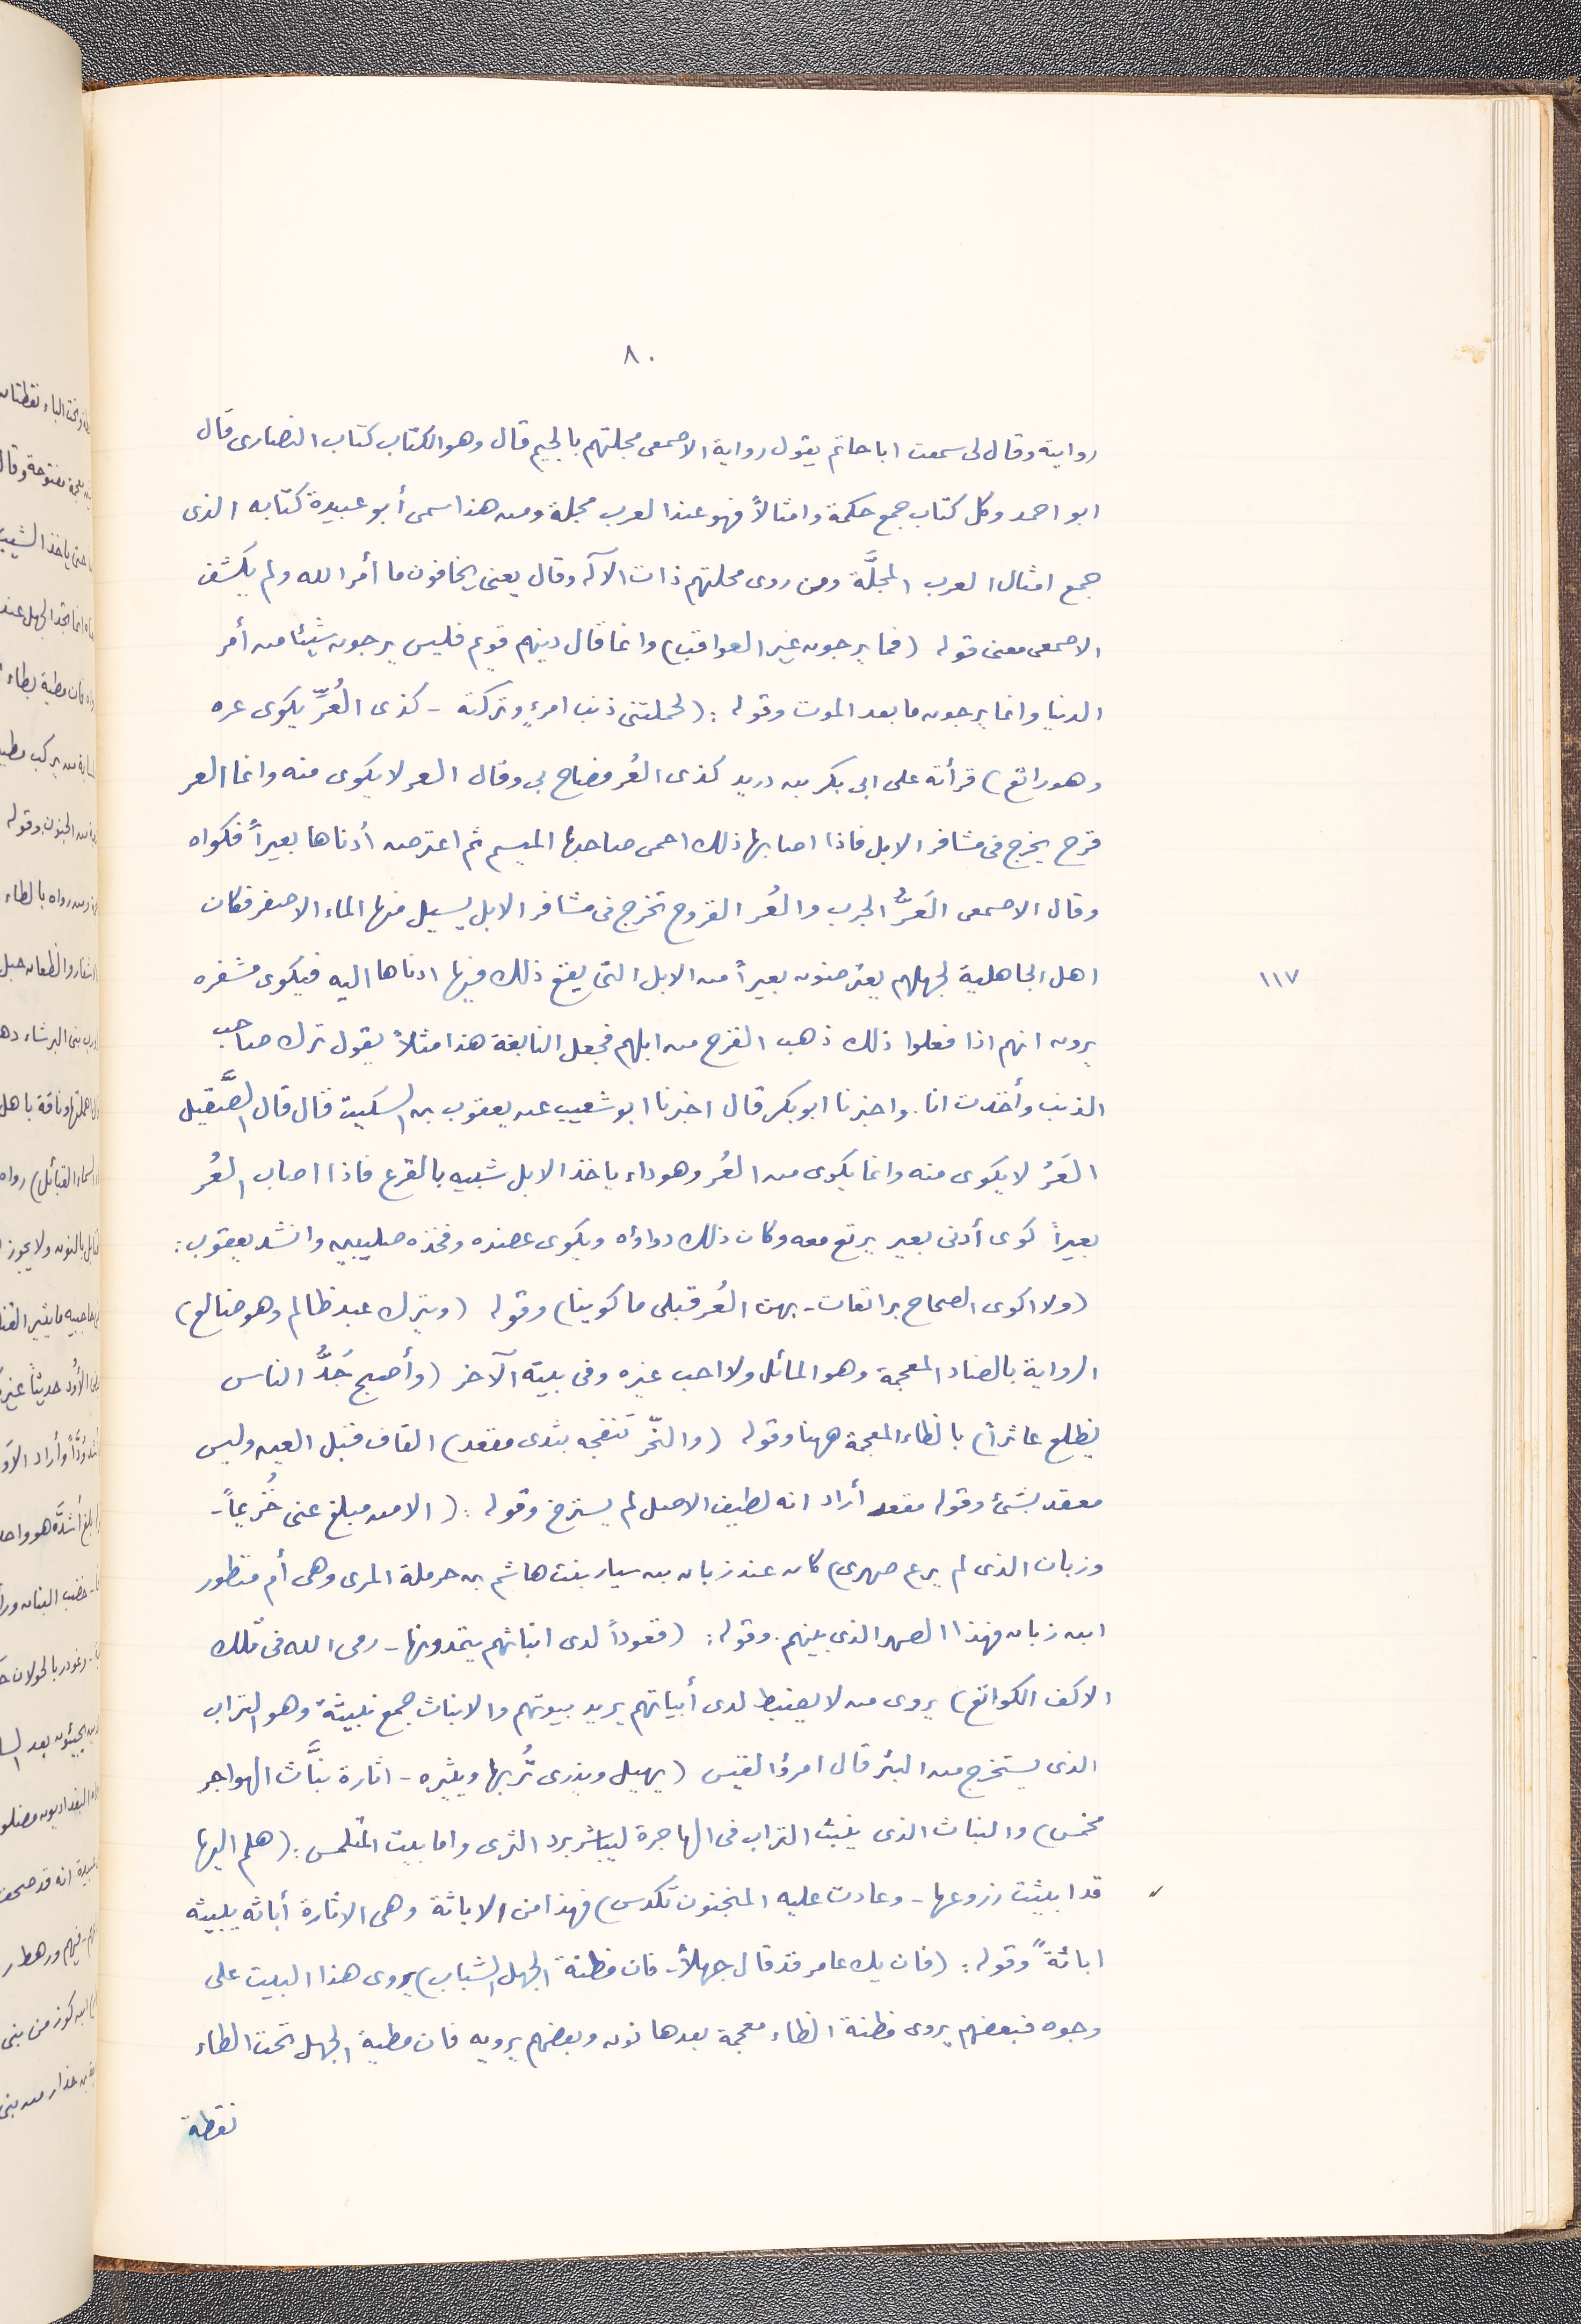 ٨٠
رواية وقال لى سمعت ابا حاتم يقول رواية الاصمعى مجلتهم بالجيم قال وهو الكتاب كتاب النصارى قال
ابو احمد وكل كتاب جمع حكمة وامثالاً فهو عند العرب مجلة ومن هذا سمى أبو عبيدة كتابه الذى
جمع امثال العرب المجلَّة ومن روى محلتهم ذات الآله وقال يعنى يخافون ما أمر الله ولم يكشف
الاصمعى معنى قوله (فما يرجون غير العواقب) وانما قال دينهم قويم فليس يرجون شيئا من أمر
الدنيا وانما يرجون ما بعد الموت وقوله : (لحملتنى ذنب امرئٍ وتركته - كذى العُرِّ يكوى عره
وهو راتع) قرأته على ابى بكر بن دريد كذى العُر فصاح بى وقال العر لا يكوى منه وانما العر
قرح يخرج فى مشافر الابل فاذا اصابها ذلك احمى صاحبها الميسم ثم اعترض أدناها بعيراً فكواه
وقال الاصمعى العَرُّ الجرب والعُر القروح تخرج فى مشافر الابل يسيل منها الماء الاصفر فكان
اهل الجاهلية لجهلهم يعترضون بعيراً من الابل التى يقع ذلك فيها ادناها اليه فيكوى مشفره
١١٧
يرون انهم اذا فعلوا ذلك ذهب القرح من ابلهم فجعل النابغة هذا مثلاً يقول ترك صاحب
الذنب وأخذت انا. واخبرنا ابو بكر قال اخبرنا ابو شعيب عن يعقوب بن السكيت قال قال الصَّقيل
العَرُ لا يكوى منه وانما يكوى من العُر وهو داء ياخذ الابل شبيه بالقرع فاذا اصاب العُر
بعيراً كوى أدنى بعير يرتع معه وكان ذلك دواؤه ويكوى عضده وفخذه صليبين وانشد يعقوب :
(ولا اكوى الصحاح براتعات - بهن العُر قبلى ما كوينا) وقوله (ويترك عبد ظالم وهو ضالع)
الرواية بالضاد المعجمة وهو المائل ولا احب غيره وفى بيته الآخر (وأصبح جَدُّ الناس
يظلع عاثراً) بالظاء المعجمة ههنا وقوله (والنحّر تنفجه بثدى مقعد) القاف قبل العين وليس
معقد بشئ وقوله مقعد أراد انه لطيف الاصل لم يسترخ وقوله : (الا من مبلغ عنى خُزيماً -
وزبان الذى لم يرع صهرى) كان عند زبان بن سيار بنت هاشم بن حرملة المرى وهى أم منظور
ابن زبان فهذا الصهر الذى بينهم. وقوله : (قعوداً لدى ابنائهم يثمدونها - رمى الله فى تلك
الاكف الكوانع) يروى من لا يضبط لدى أبياتهم يريد بيوتهم والانباث جمع نبيثة وهو التراب
الذى يستخرج من البئر قال امرؤ القيس (يهيل ويذرى تُربها ويثيره - اثارة نبَّاث الهواجر
مخمس) والنباث الذى ينبث التراب فى الهاجرة ليباشر برد الثرى واما بيت المتلمس : (هلم اليها
قد ابيثت زروعها - وعادت عليه المنجنون تكدس) فهذا من الاباثة وهى الاثارة أباثه يبيثه
اباثةً وقوله : (فان يك عامر قد قال جهلاً - فان مظنة الجهل الشباب) يروى هذا البيت على
وجوه فبعضهم يروى مظنة الظاء معجمة بعدها نون وبعضهم يرويه فان مطية الجهل تحت الطاء
نقطة